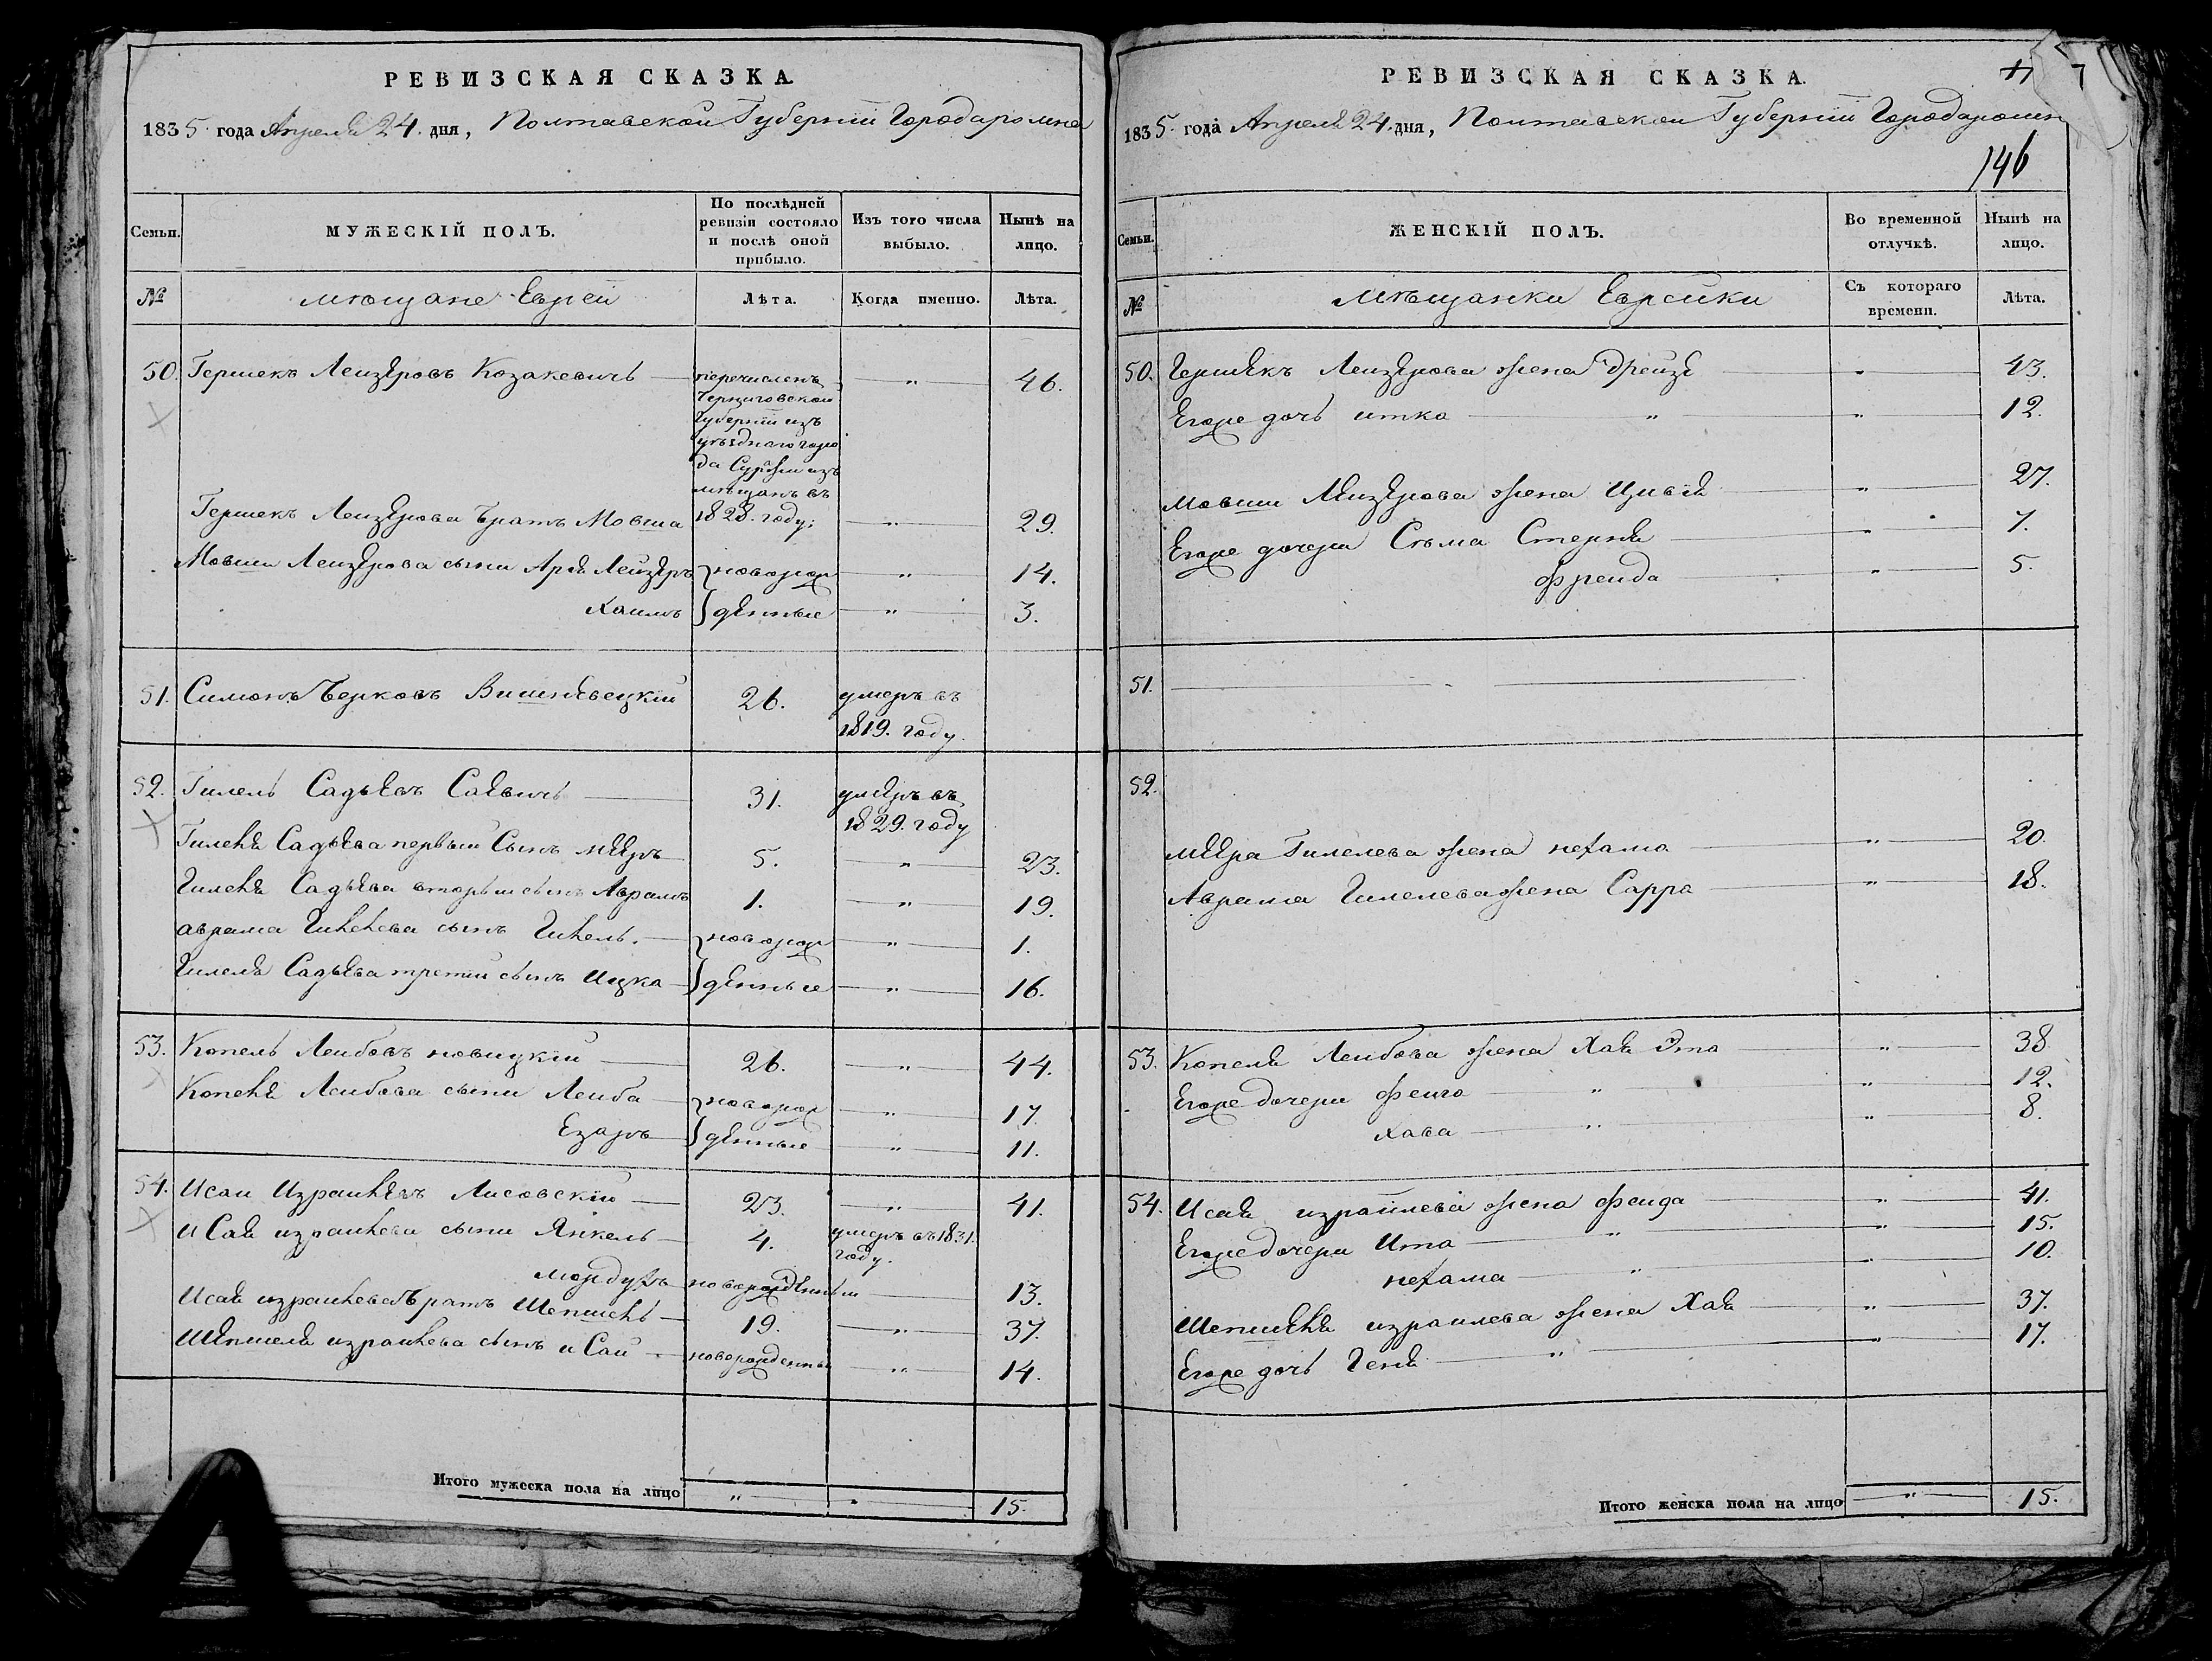 РЕВИЗСКАЯ СКАЗКА.
1835 года Апреля 24 дня, Полтавской Губернïи Города ромна
Семьи. МУЖЕСКІЙ ПОЛЪ. По послѣдней ревизіи состояло и послѣ оной прибыло. Изъ того числа выбыло. Нынѣ на лицо.
№ мѣщане Евреи Лѣта. Когда именно. Лѣта.
50. Гершекъ Леизеровъ Козакевичь перечисленъ " 46.
Черниговской
Губернïи изъ
уѣзднаго горо
да Суража изъ
мѣщанъ въ
Гершека Леизерова братъ Мовша 1828. году; " 29.
Мовши Леизерова сыни Арïя Леизеръ новорож " 14.
Хаимъ денные " 3.
51. Симонъ Берковъ Вишневецкïй 26. умеръ въ
1819. году.
52. Гилель Садьевъ Саевичь 31. умеръ въ
1829. году
Гилеля Садьева первый Сынъ меeръ 5. " 23.
Гилеля Садьева вторый сынъ Аврамъ 1. " 19.
аврама Гилелева сынъ Гилель. новорож " 1.
Гилеля Садьева третïй сынъ Ицка денные " 16.
53. Копель Леибовъ новицкïй 26. " 44.
Копеля Леибова сыни Леиба новорож " 17.
Езаръ денные " 11.
54. Исаи Израилевъ Лисовскïй 23. " 41.
иСая израилева сыни Янкель 4. умеръ въ 1831.
году.
мордухъ новорожденныи 13.
Исая израилева братъ Шепшель 19. " 37.
Шепшеля израилева сынъ иСаи новорожденныи " 14.
Итого мужеска пола на лицо " 15.
РЕВИЗСКАЯ СКАЗКА.
7
1835. года Апреля 24. дня, Полтавской Губернïи Города
146
Семьи. ЖЕНСКІЙ ПОЛЪ. Во временной отлучкѣ. Нынѣ на лицо.
№ Мѣщанки Евреики Съ котораго времени. Лѣта.
50. Гершекъ Леизерова жена Дреизе " 43.
Егоже дочь итка " " 12.
мовши Леизерова жена Цивïя " 27.
Егоже дочери Сима Стерня " 7.
фреида " 5.
51.
52.
меера Гилелева жена нехама " 20.
Аврама Гилелева жена Сарра " 18.
53. Копеля Леибова жена Хая Эта " 38
Егоже дочери феига " " 12.
хава " " 8.
54. Исая израилева жена феида " 41.
Егоже дочери Ита " " 15.
нехама " " 10.
Шепшеля израилева жена Хая " 37.
Егоже дочь Геня " " 17.
Итого женска пола на лицо " 15.